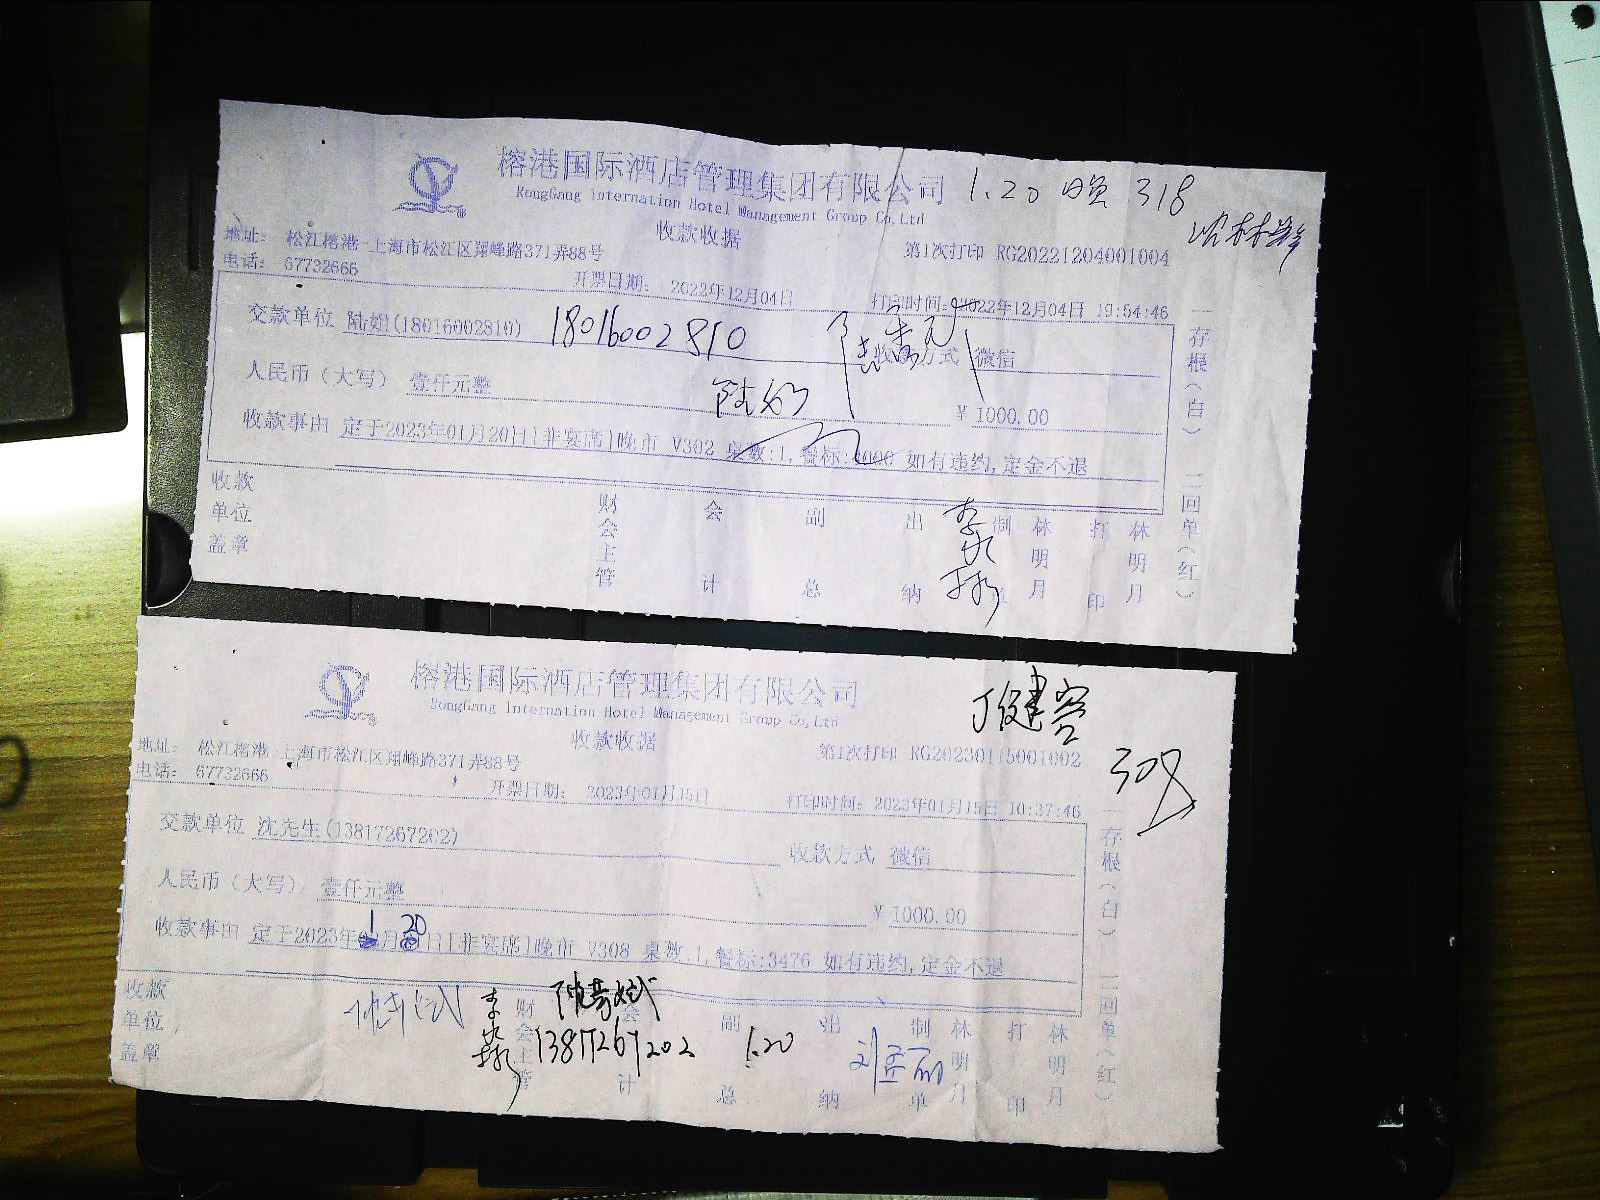 榕港国际酒店管理集团有限公司 1.20 晚 318
RongGang Internation Hotel Management Group Co,Ltd
收款收据
地址: 松江榕港-上海市松江区翔峰路371弄88号 第1次打印 RG20221204001004
电话: 67732666 开票日期: 2022年12月04日 打印时间: 2022年12月04日 19:54:46
交款单位 陆娟(18016002810) 18016002810 收款方式 微信
人民币(大写) 壹仟元整 ¥ 1000.00
收款事由 定于2023年01月20日[非宴席]晚市 V302 桌数:1,餐标:4000 如有违约,定金不退
收款单位盖章 财会主管 会计 副总 出纳 制单 林明月 打印 林明月
一存根(白) 二回单(红)
榕港国际酒店管理集团有限公司
RongGang Internation Hotel Management Group Co,Ltd
收款收据
地址: 松江榕港-上海市松江区翔峰路371弄88号 第1次打印 RG20230115001002
308
电话: 67732666 开票日期: 2023年01月15日 打印时间: 2023年01月15日 10:37:46
交款单位 沈先生(13817267202) 收款方式 微信
人民币(大写) 壹仟元整 ¥ 1000.00
收款事由 定于2023年1月20日[非宴席]晚市 V308 桌数:1,餐标:3476 如有违约,定金不退
收款单位盖章 财会主管 会计 副总 出纳 制单 林明月 打印 林明月
13817267202 1.20
一存根(白) 二回单(红)